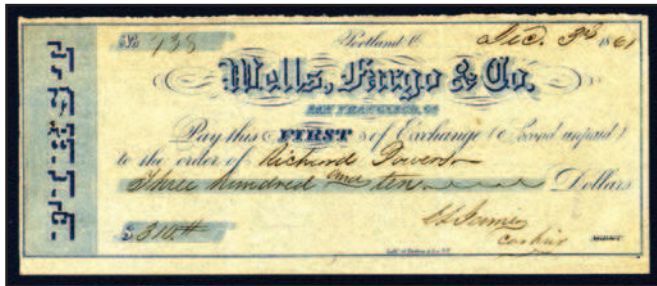 No 438
Portland O. Dec. 3rd 1861
Wells, Fargo & Co.
SAN FRANCISCO, CA
Pay this FIRST of Exchange (Second unpaid)
to the order of Richard Powers
Three hundred and ten Dollars
$310.
cashier